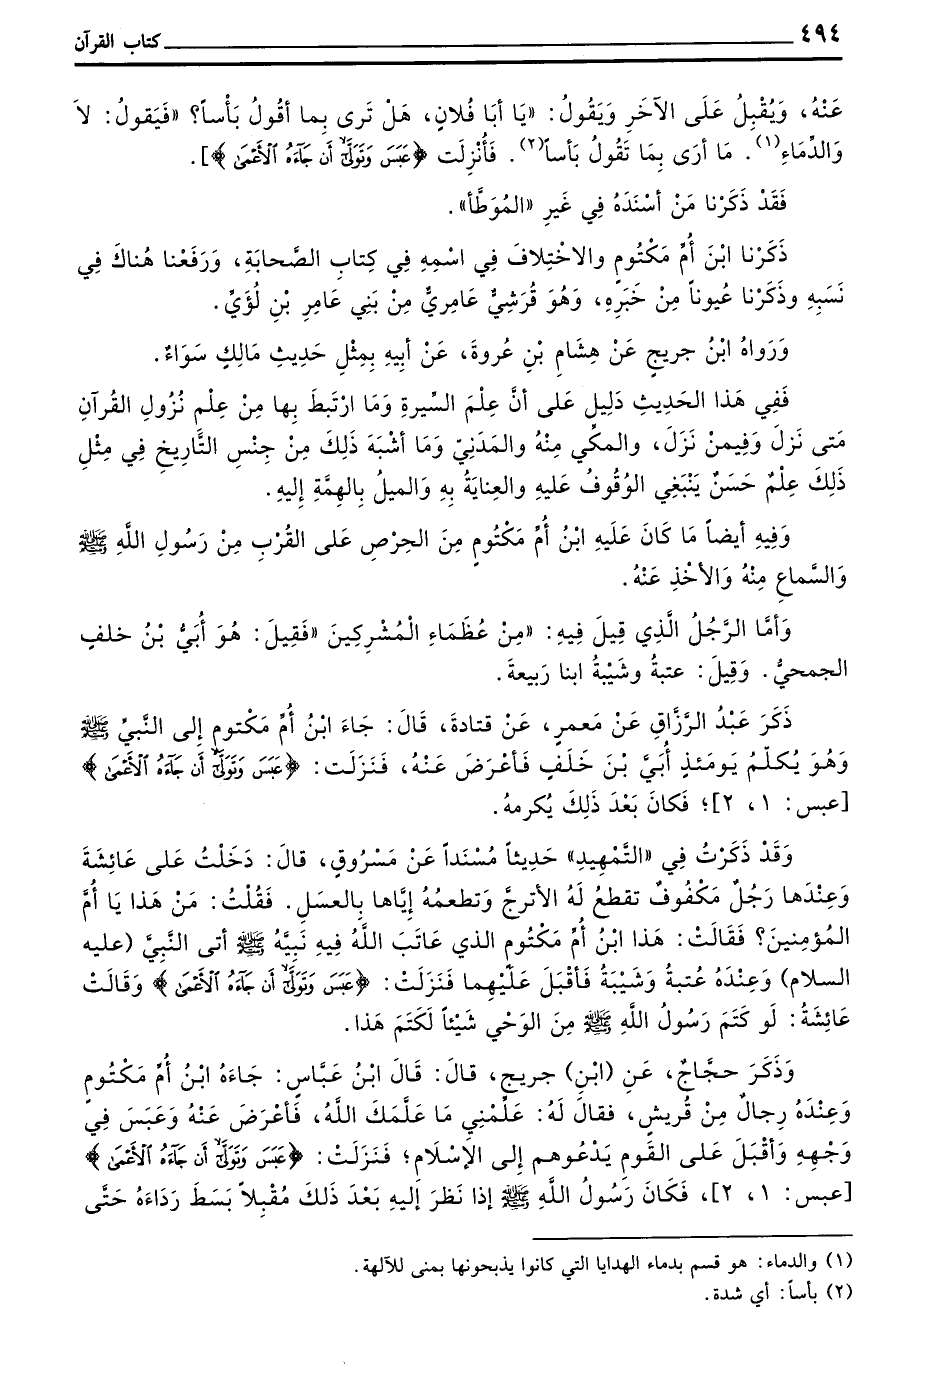 ٤٩٤ كتاب القرآن
عَنْهُ، وَيُقْبِلُ عَلَى الآخَرِ وَيَقُولُ: «يَا أبَا فُلانٍ، هَلْ تَرى بِما أقُولُ بَأْساً؟ «فَيَقولُ: لاَ
وَالدِّمَاءِ(١). مَا أرَى بِمَا تَقُولُ بَأساً(٢). فَأُنْزِلَت ﴿عَبَسَ وَتَوَلَّىٰٓ أَن جَآءَهُ ٱلْأَعْمَىٰ﴾].
فَقَدْ ذَكَرْنا مَنْ أسْنَدَهُ فِي غَيرِ «المُوَطَّأ».
ذَكَرْنا ابْنَ أُمِّ مَكْتُومٍ والاخْتِلافَ فِي اسْمِهِ فِي كِتابِ الصَّحابَةِ، وَرَفَعْنا هُناكَ فِي
نَسَبِهِ وذَكَرْنا عُيوناً مِنْ خَبَرِهِ، وَهُوَ قُرَشِيٌّ عَامِريٌّ مِنْ بَنِي عَامِرِ بْنِ لُؤَيِّ.
وَرَواهُ ابْنُ جريجٍ عَنْ هِشَامِ بْنِ عُروةَ، عَنْ أبيهِ بِمِثْلِ حَديثِ مَالِكٍ سَوَاءٌ.
فَفِي هَذا الحَديثِ دَليل عَلى أنَّ عِلْمَ السِّيرةِ وَمَا ارْتَبطَ بِها مِنْ عِلْمِ نُزُولِ القُرآنِ
مَتى نَزلَ وَفِيمنْ نَزَلَ، والمكِّي مِنْهُ والمَدَنِيّ وَمَا أشْبَهَ ذَلِكَ مِنْ جِنْسِ التَّاريخِ فِي مِثْلِ
ذَلِكَ عِلْمٌ حَسَنٌ يَنْبَغِي الوُقُوفُ عَليهِ والعِنايَةُ بِهِ وَالميلُ بِالهِمَّةِ إليهِ.
وَفِيهِ أيضاً مَا كَانَ عَلَيهِ ابْنُ أُمِّ مَكْتُومٍ مِنَ الحِرْصِ عَلى القُرْبِ مِنْ رَسُولِ اللَّهِ ﷺ
وَالسَّماعِ مِنْهُ وَالأخْذِ عَنْهُ.
وَأمَّا الرَّجُلُ الَّذِي قِيلَ فِيهِ: «مِنْ عُظَمَاءِ الْمُشْرِكِينَ «فَقِيلَ: هُوَ أُبَيُّ بْنُ خلفٍ
الجمحيُّ. وَقِيلَ: عتبةُ وشَيْبَةُ ابنا رَبيعةَ.
ذَكَرَ عَبْدُ الرَّزَّاقِ عَنْ مَعمرٍ، عَنْ قتادةَ، قَالَ: جَاءَ ابْنُ أُمِّ مَكْتومٍ إلى النَّبيِّ ﷺ
وَهُوَ يُكلِّمُ يَومَئذٍ أُبَيَّ بْنَ خَلَفٍ فَأعْرَضَ عَنْهُ، فَنزَلَت: ﴿عَبَسَ وَتَوَلَّىٰٓ أَن جَآءَهُ ٱلْأَعْمَىٰ﴾
[عبس: ١، ٢]؛ فَكانَ بَعْدَ ذَلِكَ يُكرمهُ.
وَقَدْ ذَكَرْتُ فِي «التَّمْهِيدِ» حَديثاً مُسْنَداً عَنْ مَسْرُوقٍ، قالَ: دَخَلْتُ عَلى عَائِشَةَ
وَعِنْدَها رَجُلٌ مَكْفُوفٌ تقطعُ لَهُ الأترجَّ وَتطعمُهُ إيَّاها بِالعسَلِ. فَقُلْتُ: مَنْ هَذا يَا أُمَّ
المُؤمِنينَ؟ فَقَالَتْ: هَذا ابْنُ أُمِّ مَكْتُومٍ الذي عَاتَبَ اللَّهُ فِيهِ نَبِيَّهُ ﷺ أتى النَّبيَّ (عليه
السلام) وَعِنْدَهُ عُتبةُ وَشَيْبَةُ فَأقْبَلَ عَلَيْهِما فَنزَلَتْ: ﴿عَبَسَ وَتَوَلَّىٰٓ أَن جَآءَهُ ٱلْأَعْمَىٰ﴾ وَقَالَتْ
عَائِشَةُ: لَو كَتَمَ رَسُولُ اللَّهِ ﷺ مِنَ الوَحْي شَيْئاً لَكتَمَ هَذا.
وَذَكَرَ حجَّاجٌ، عَنِ (ابْنِ) جريجٍ، قالَ: قَالَ ابْنُ عَبَّاسٍ: جَاءَهُ ابْنُ أُمِّ مَكْتُومٍ
وَعِنْدَهُ رِجالٌ مِنْ قُريشٍ، فقالَ لَهُ: عَلِّمْنِي مَا عَلَّمَكَ اللَّهُ، فَأعْرَضَ عَنْهُ وَعَبَسَ فِي
وَجْهِهِ وَأقْبَلَ عَلى القَومِ يَدْعُوهم إلى الإسْلامِ؛ فَنَزَلَتْ: ﴿عَبَسَ وَتَوَلَّىٰٓ أَن جَآءَهُ ٱلْأَعْمَىٰ﴾
[عبس: ١، ٢]، فَكانَ رَسُولُ اللَّهِ ﷺ إذا نَظرَ إليهِ بَعْدَ ذَلكَ مُقْبِلاً بَسَطَ رِدَاءَهُ حَتَّى
(١) والدماء: هو قسم بدماء الهدايا التي كانوا يذبحونها بمنى للآلهة.
(٢) بأساً: أي شدة.